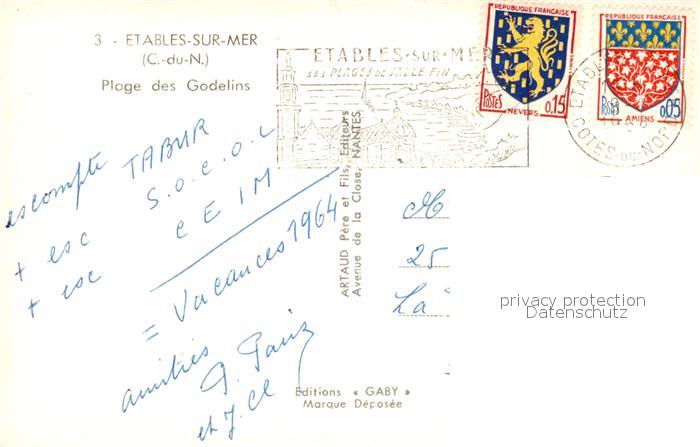 3 - ETABLES-SUR-MER
(C.-du-N.)
Plage des Godelins
ETABLES-SUR-MER
SES PLAGES DE SABLE FIN
REPUBLIQUE FRANÇAISE
POSTES
0.15
NEVERS
REPUBLIQUE FRANÇAISE
POSTES
0.05
AMIENS
COTES-DU-NORD
escompte TABUR
+ esc S.O.C.O.L
+ esc C E I M
= Vacances 1964
amitiés
et J. Cl
ARTAUD Père et Fils, Editeurs
Avenue de la Close, NANTES
M
25
La
privacy protection
Datenschutz
Editions « GABY »
Marque Déposée